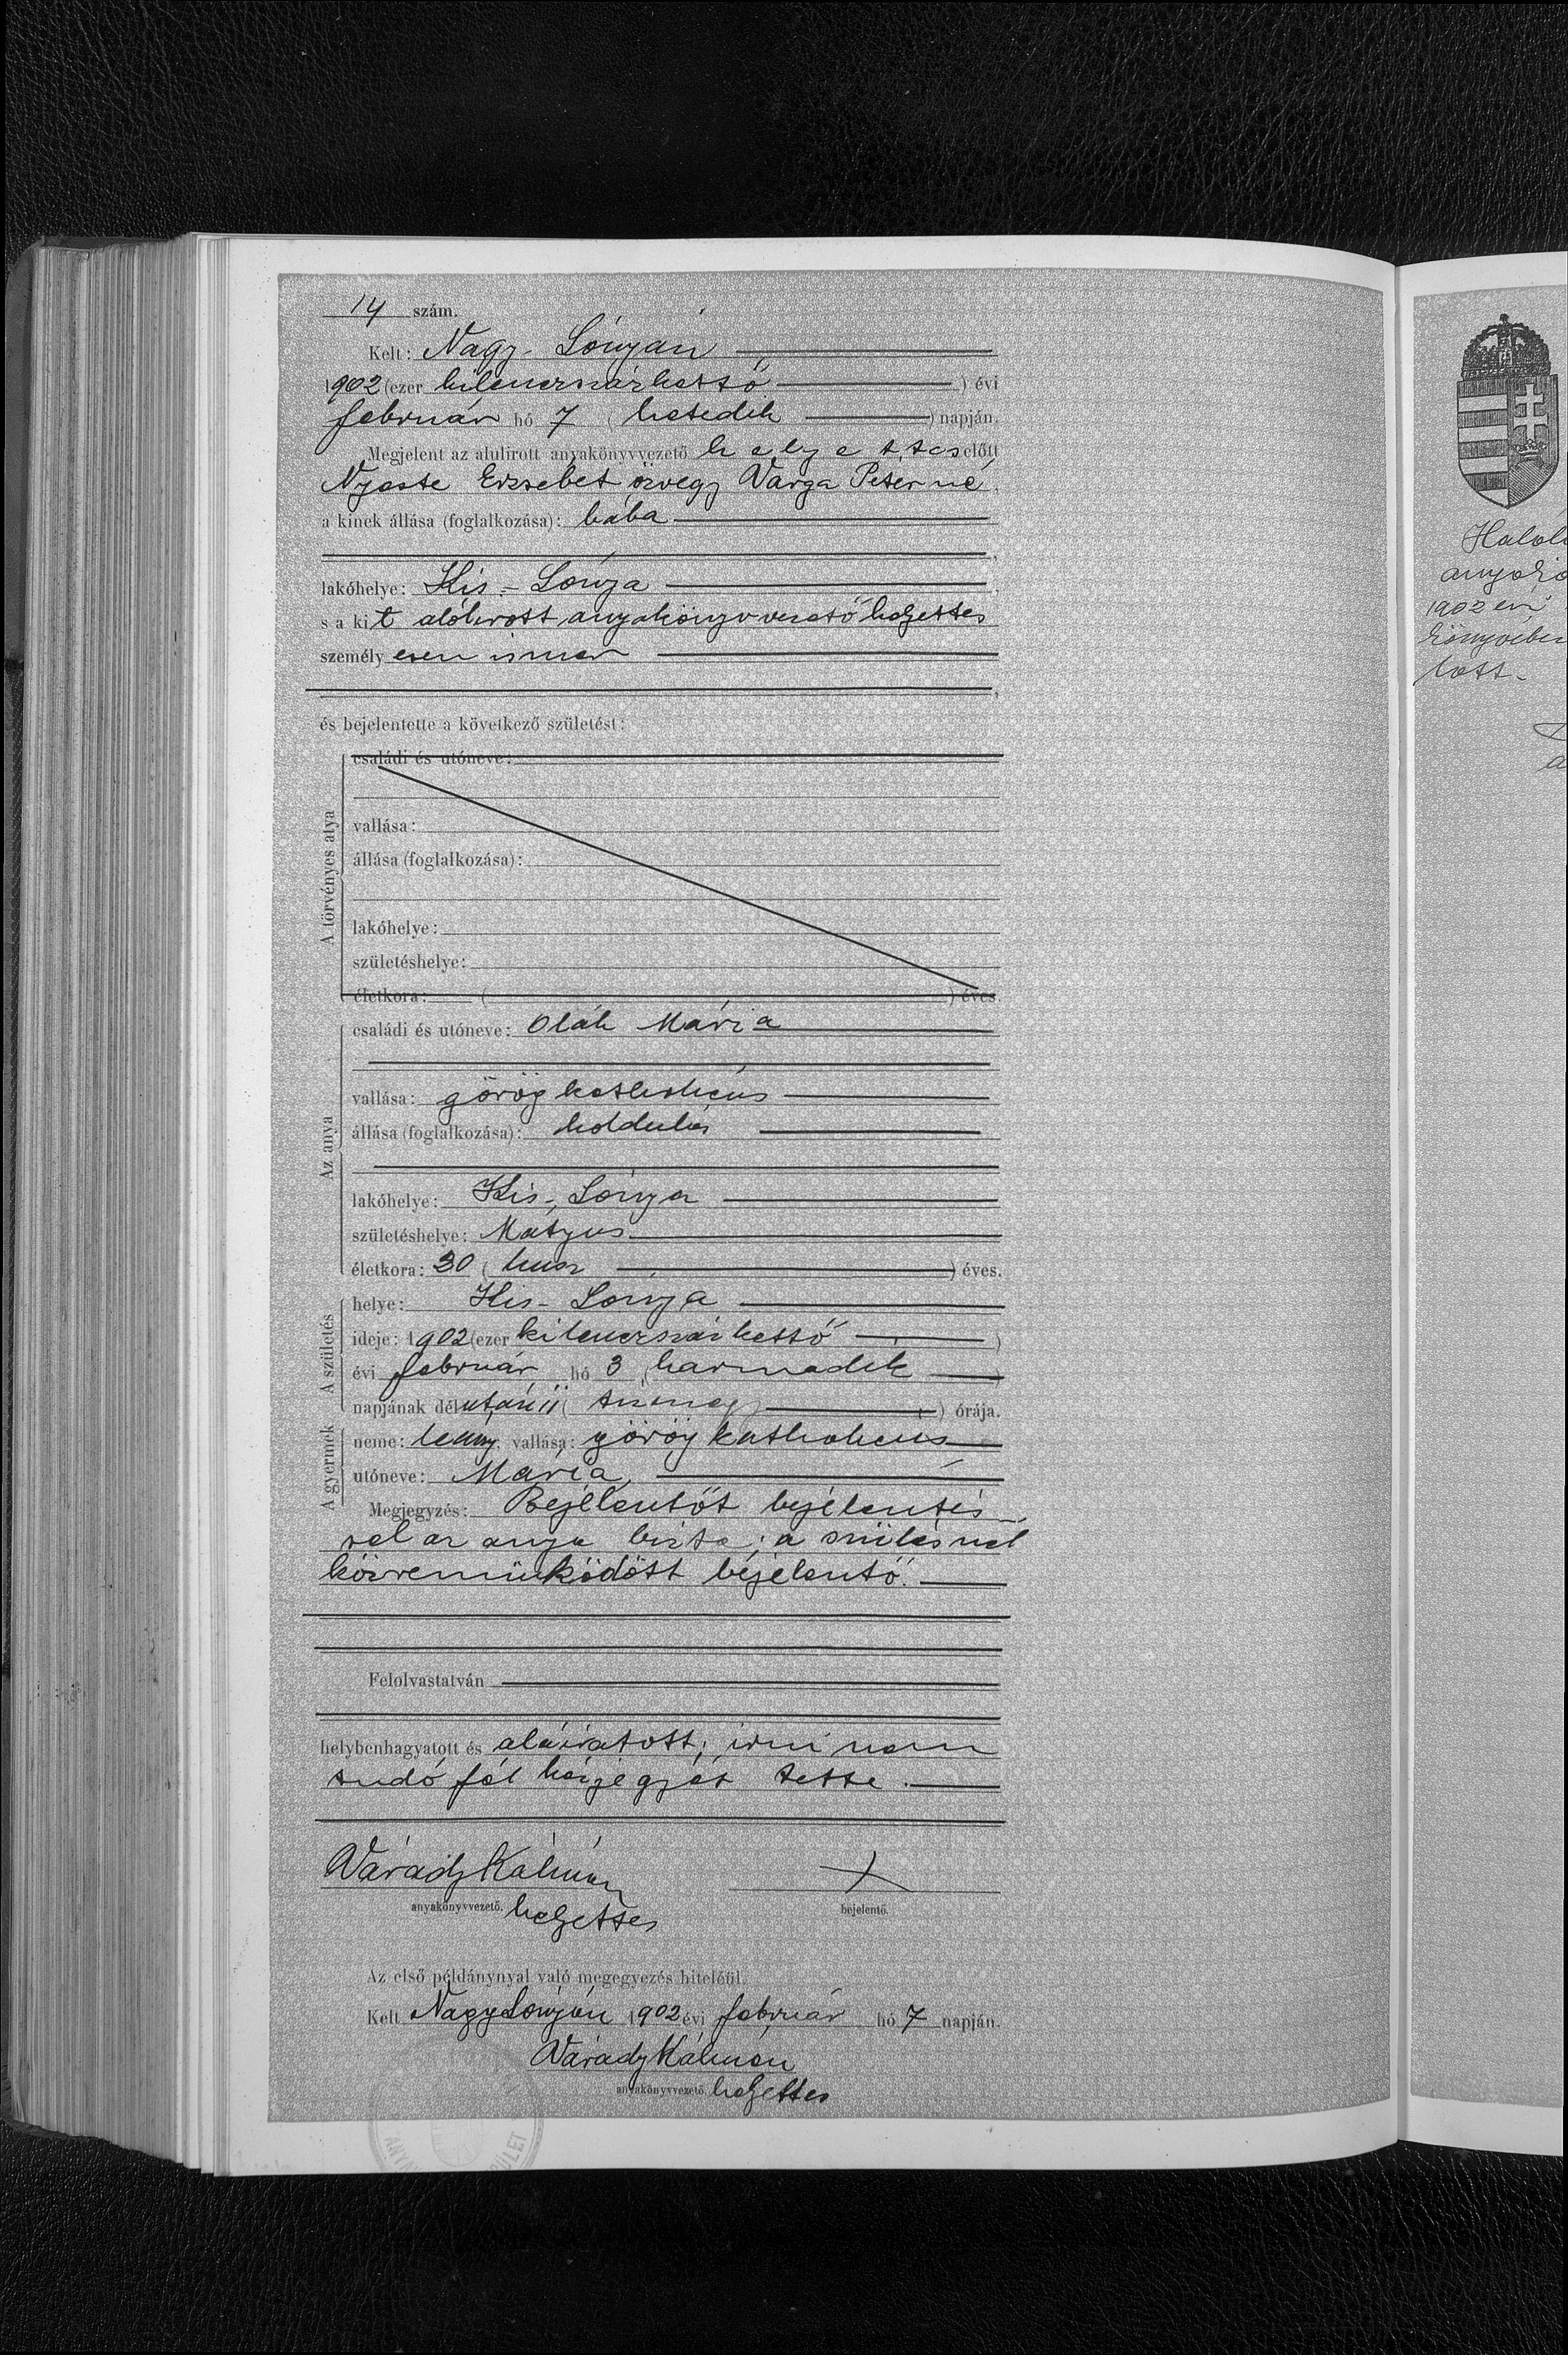 14 szám.
Kelt: Nagy-Lónyán
1902 (ezer kilenczszázkettő) évi
február hó 7 (hetedik) napján.
Megjelent az alulirott anyakönyvvezető helyettes előtt
Nyeste Erzsebet özvegy Varga Péter né,
a kinek állása (foglalkozása): bába
lakóhelye: Kis-Lónya
s a kit alólirott anyakönyvvezető helyettes
személyesen ismer
és bejelentette a következő születést:
A törvényes atya
családi és utóneve:
vallása:
állása (foglalkozása):
lakóhelye:
születéshelye:
életkora: ( ) éves.
Az anya
családi és utóneve: Oláh Mária
vallása: görög katholicus
állása (foglalkozása): koldulás
lakóhelye: Kis-Lónya
születéshelye: Mátyus
életkora: 20 (husz) éves.
A születés
helye: Kis-Lónya
ideje: 1902 (ezer kilenczszázkettő)
évi február hó 3 (harmadik)
napjának délutáni 11 (tizenegy) órája.
A gyermek
neme: leány, vallása: görög katholicus
utóneve: Mária,
Megjegyzés: Bejelentőt bejelentés-
sel az anya bizta; a szülésnél
közreműködött bejelentő.
Felolvastatván
helybenhagyatott és aláiratott; irni nem
tudó fél kézjegyét tette.
Várady Kálmán
anyakönyvvezető. helyettes
bejelentő.
Az első példánynyal való megegyezés hiteléül.
Kelt Nagylónyán 1902 évi február hó 7 napján.
Várady Kálmán
anyakönyvvezető helyettes
Halál
anyakö
1902 évi
könyvében
tott.